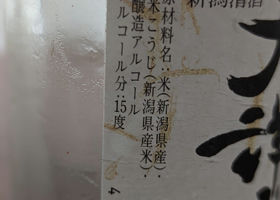 新潟清酒
原材料名:米(新潟県産)・
米こうじ(新潟県産米)・
醸造アルコール
アルコール分:15度
4